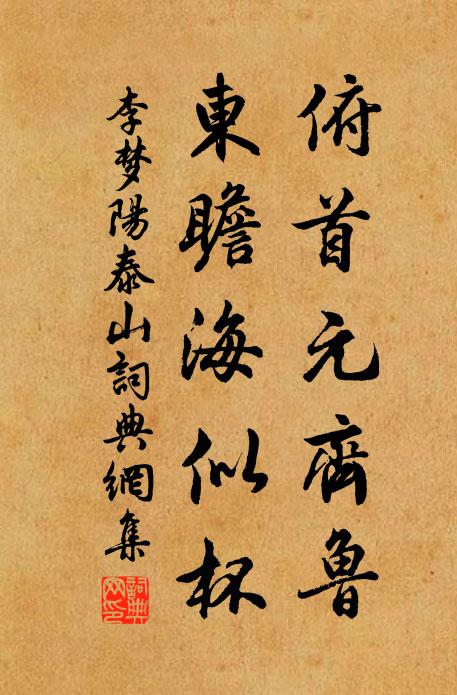 俯首元齊魯
東瞻海似杯
李梦陽泰山詞典網集
詞典網印